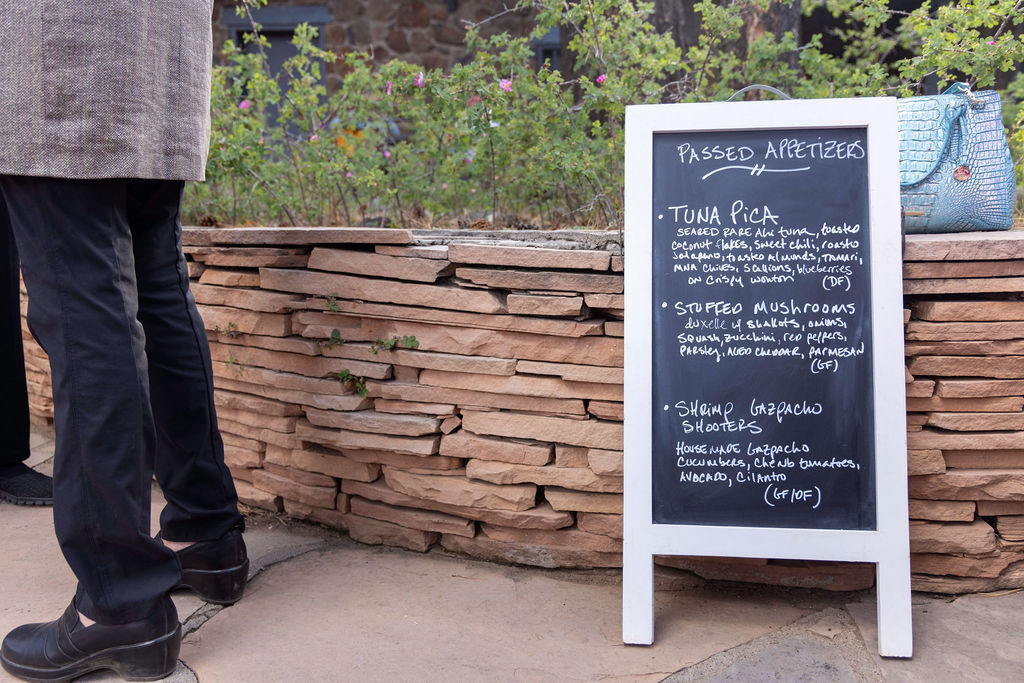 PASSED APPETIZERS
• TUNA PiCA
SEARED RARE AHI tuna, toasted
coconut flakes, sweet chili, roasted
Jalapeno, toasted Almonds, TAMARI,
chives, Scallions, blueberries
on crispy wonton (DF)
• STUFFED MUSHROOMS
duxelle w/ shallots, onions,
squash, zucchini, red peppers,
Parsley, AGED cheddar, PARMESAN
(GF)
• SHRIMP GAZPACHO
SHOOTERS
HOUSEMADE Gazpacho
CUCUMBERS, Cherub tomatoes,
AVOCADO, Cilantro
(GF/DF)